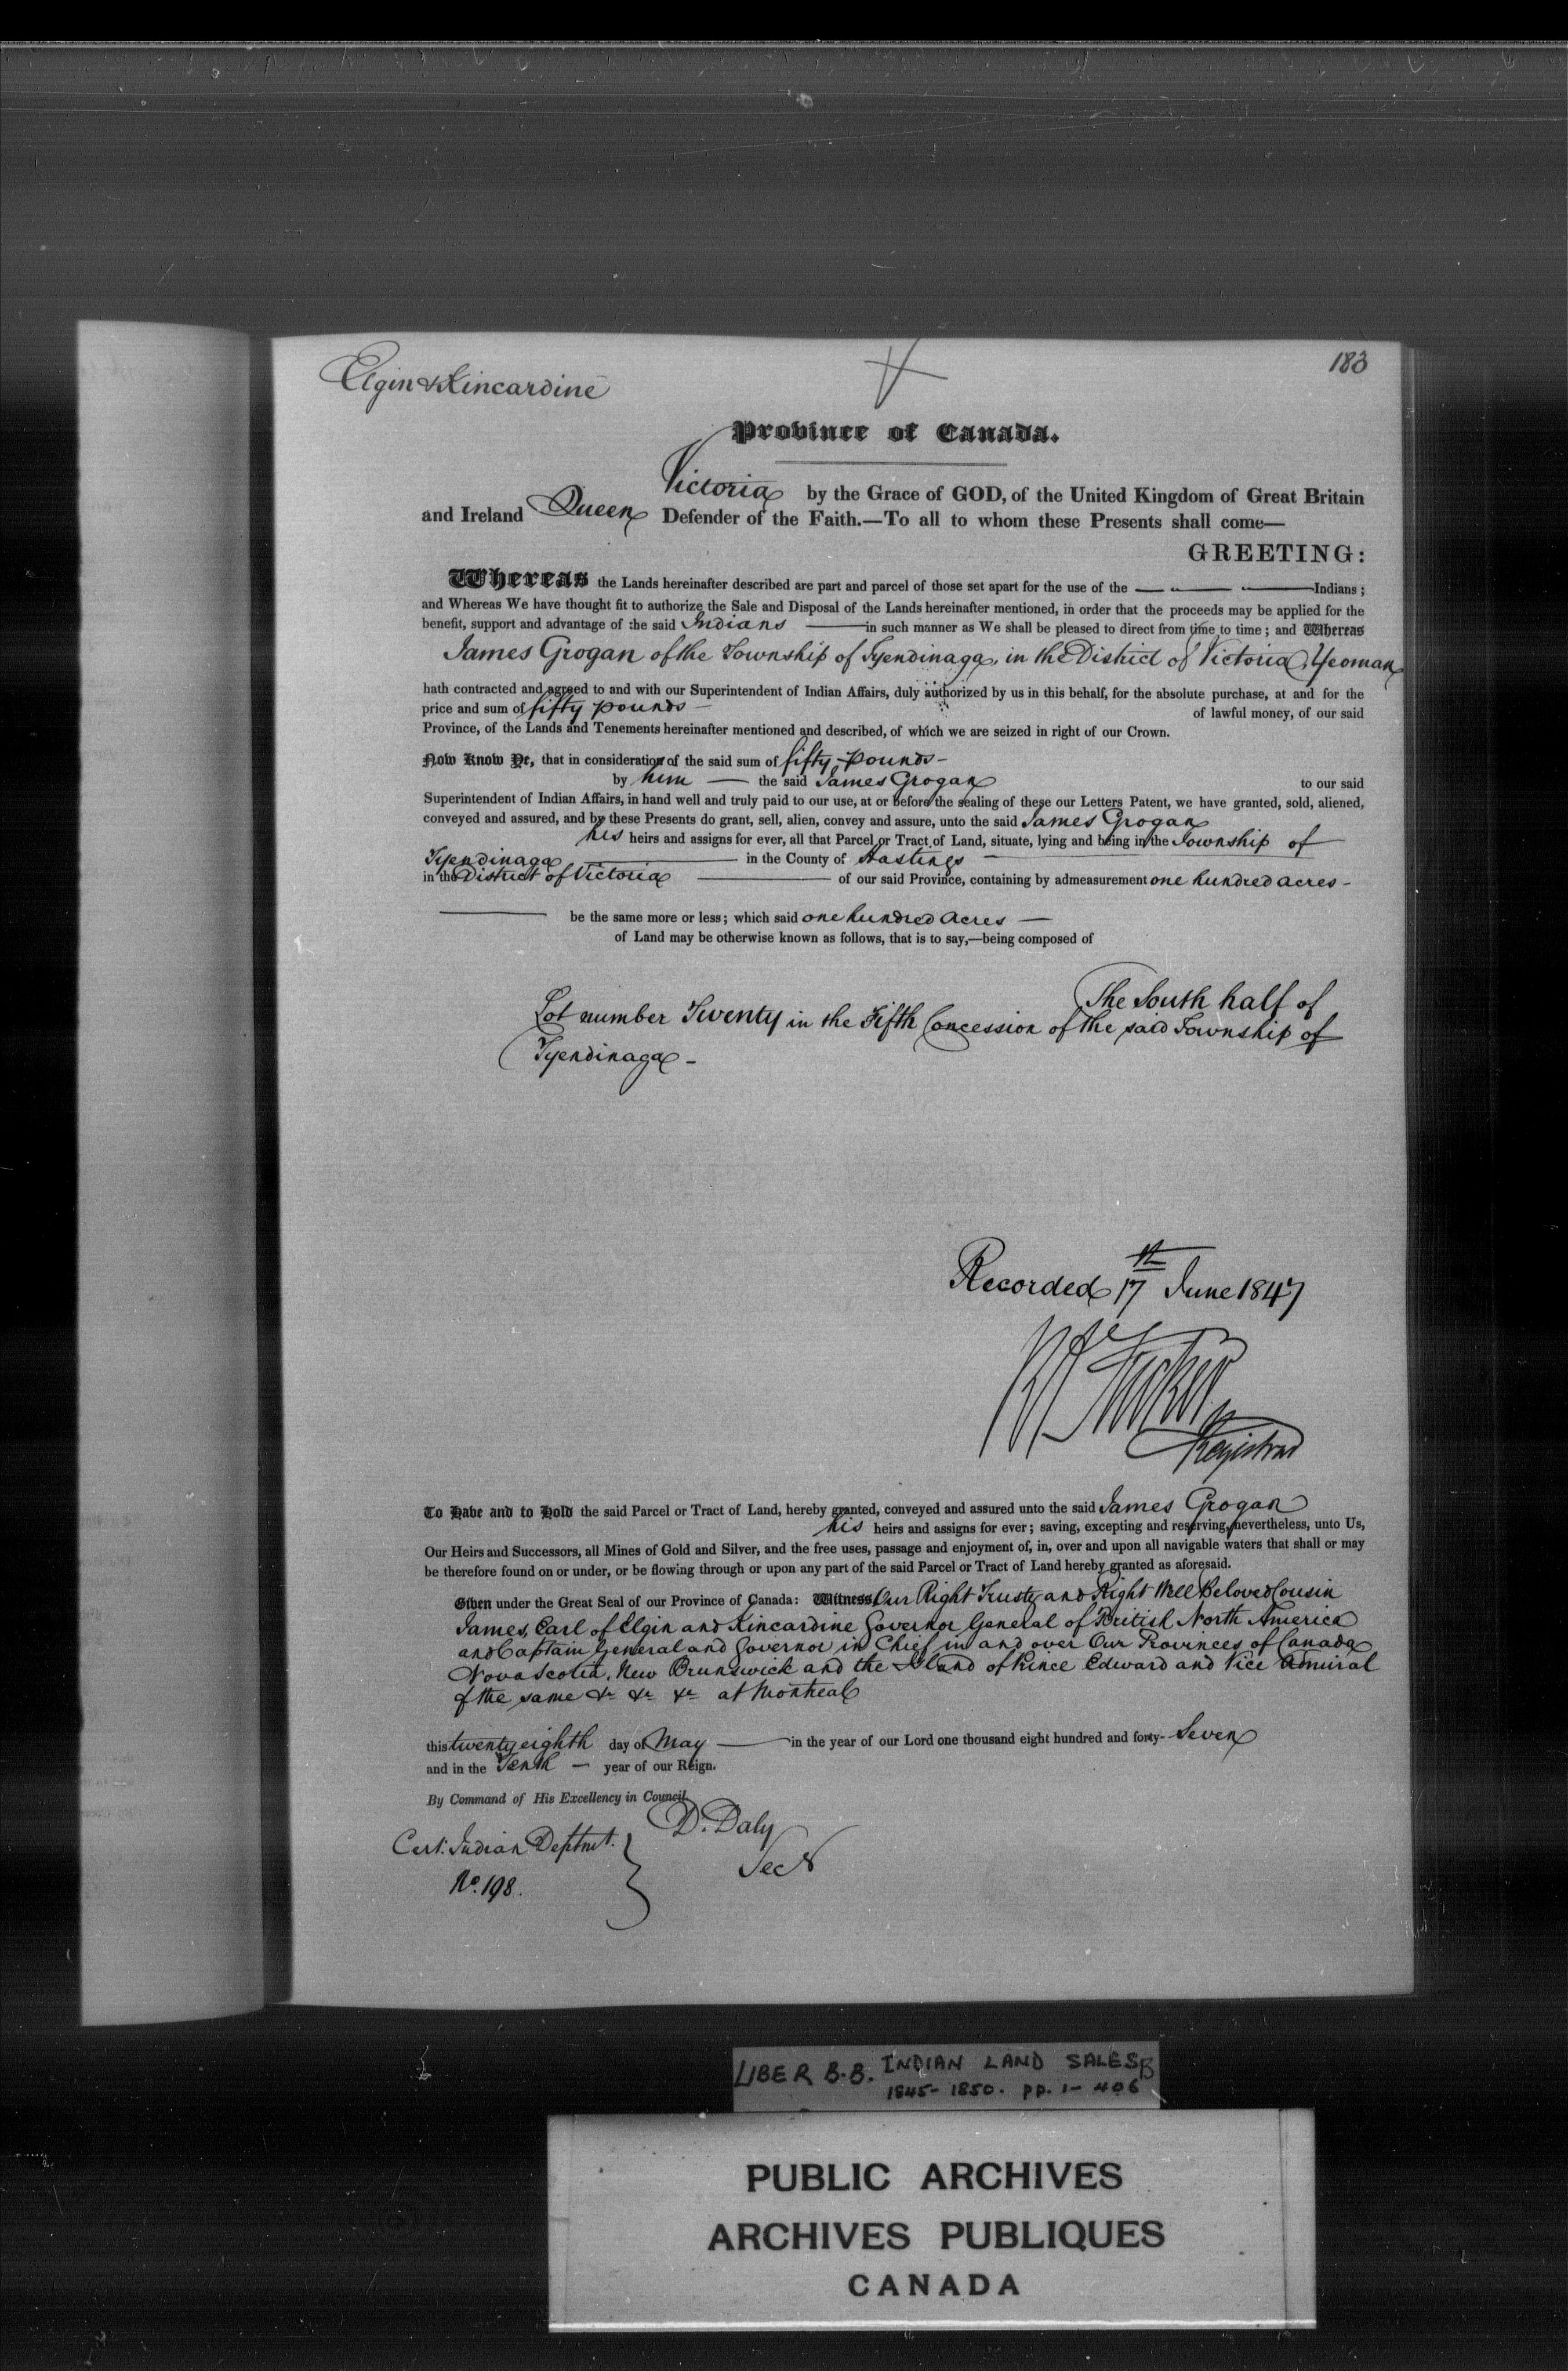 Elgin & Kincardine
183
Province of Canada.
Victoria by the Grace of GOD, of the United Kingdom of Great Britain
and Ireland Queen Defender of the Faith.—To all to whom these Presents shall come—
GREETING:
Whereas the Lands hereinafter described are part and parcel of those set apart for the use of the — — — Indians;
and Whereas We have thought fit to authorize the Sale and Disposal of the Lands hereinafter mentioned, in order that the proceeds may be applied for the
benefit, support and advantage of the said Indians — in such manner as We shall be pleased to direct from time to time; and Whereas
James Grogan of the Township of Tyendinaga, in the District of Victoria, Yeoman
hath contracted and agreed to and with our Superintendent of Indian Affairs, duly authorized by us in this behalf, for the absolute purchase, at and for the
price and sum of fifty pounds — of lawful money, of our said
Province, of the Lands and Tenements hereinafter mentioned and described, of which we are seized in right of our Crown.
Now Know Ye, that in consideration of the said sum of fifty pounds —
by him — the said James Grogan to our said
Superintendent of Indian Affairs, in hand well and truly paid to our use, at or before the sealing of these our Letters Patent, we have granted, sold, aliened,
conveyed and assured, and by these Presents do grant, sell, alien, convey and assure, unto the said James Grogan
his heirs and assigns for ever, all that Parcel or Tract of Land, situate, lying and being in the Township of
Tyendinaga — in the County of Hastings —
in the District of Victoria — of our said Province, containing by admeasurement one hundred acres —
— be the same more or less; which said one hundred acres —
of Land may be otherwise known as follows, that is to say,—being composed of
The South half of
Lot number Twenty in the Fifth Concession of the said Township of
Tyendinaga —
Recorded 17th June 1847
Tucker
Registrar
To Have and to Hold the said Parcel or Tract of Land, hereby granted, conveyed and assured unto the said James Grogan
his heirs and assigns for ever; saving, excepting and reserving, nevertheless, unto Us,
Our Heirs and Successors, all Mines of Gold and Silver, and the free uses, passage and enjoyment of, in, over and upon all navigable waters that shall or may
be therefore found on or under, or be flowing through or upon any part of the said Parcel or Tract of Land hereby granted as aforesaid.
Given under the Great Seal of our Province of Canada: Witness, Our Right Trusty and Right Well Beloved Cousin
James, Earl of Elgin and Kincardine Governor General of British North America
and Captain General and Governor in Chief in and over Our Provinces of Canada
Nova Scotia, New Brunswick and the Island of Prince Edward and Vice Admiral
of the same &c &c &c at Montreal
this twenty eighth day of May — in the year of our Lord one thousand eight hundred and forty-Seven
and in the Tenth — year of our Reign.
By Command of His Excellency in Council.
D. Daly
Secy
Cert. Indian Deptmt.
No. 198.
LIBER B.B. INDIAN LAND SALES B
1845-1850. pp. 1-406
PUBLIC ARCHIVES
ARCHIVES PUBLIQUES
CANADA